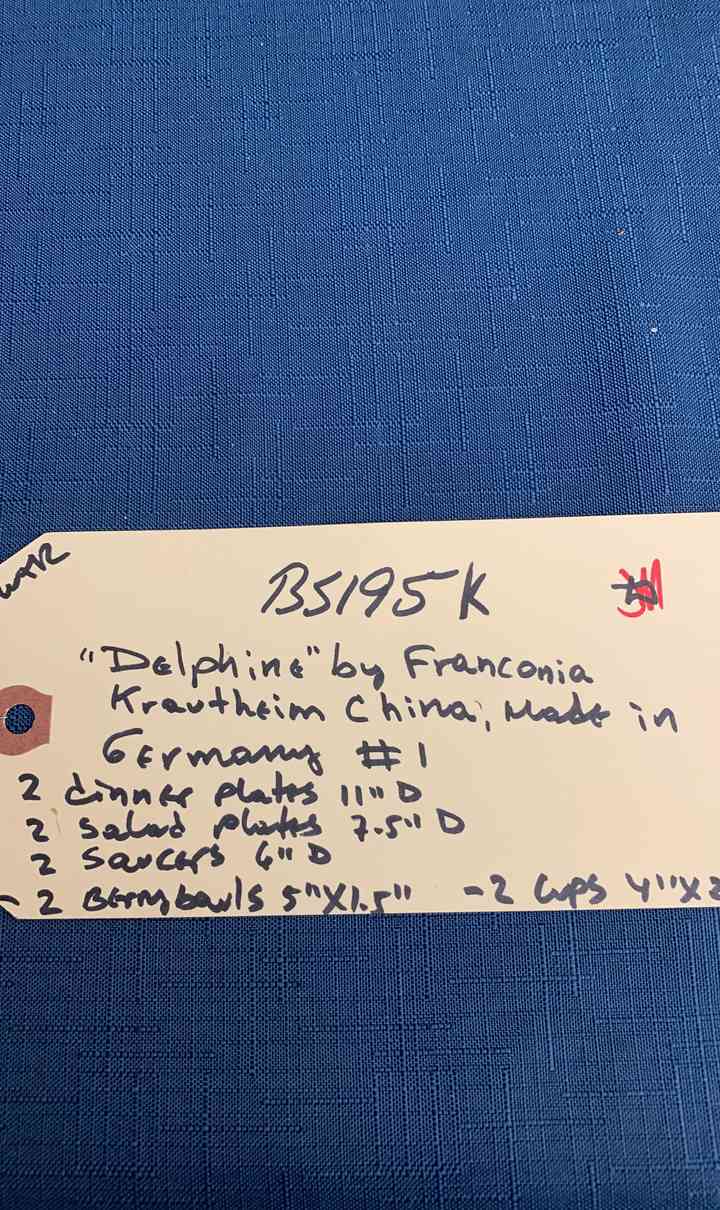 BS195K
"Delphine" by Franconia
Krautheim China, Made in
Germany #1
2 dinner plates 11" D
2 Salad plates 7.5" D
2 Saucers 6" D
- 2 Berry bowls 5"X1.5" - 2 Cups 4"X